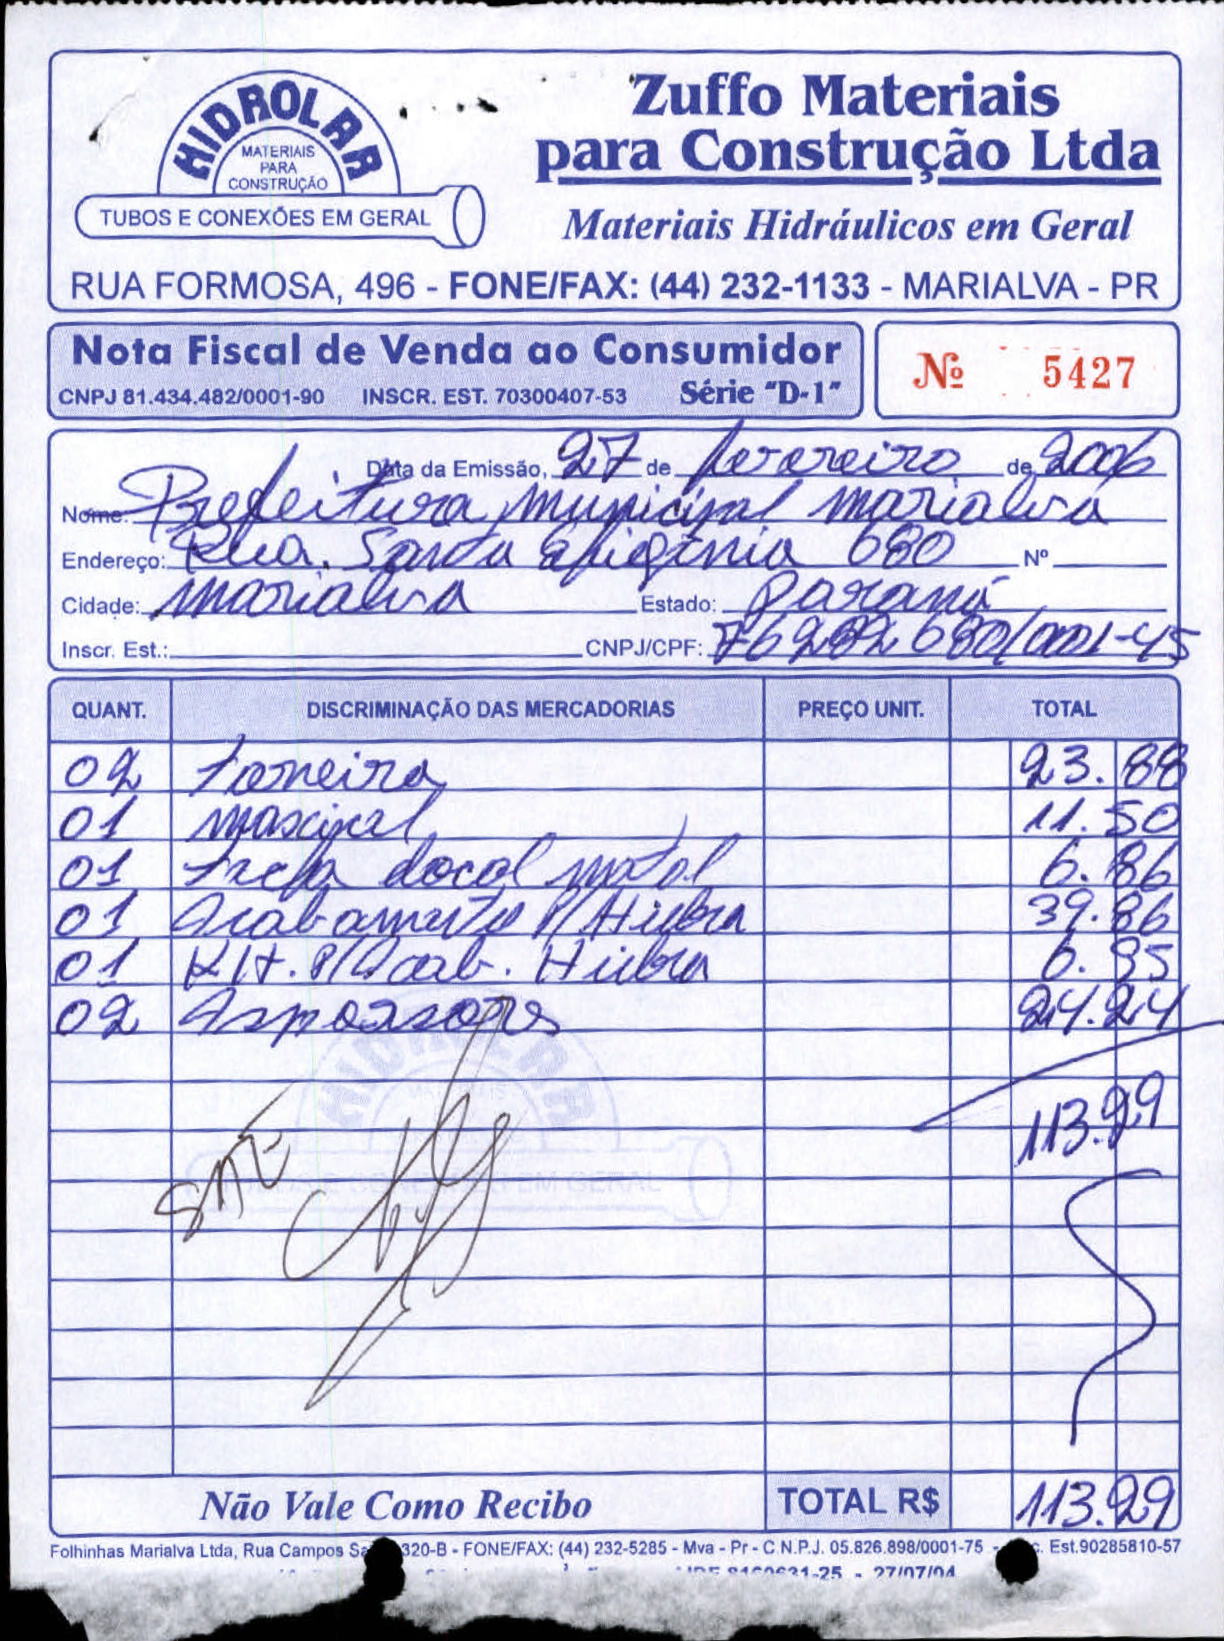 HIDROLAR
MATERIAIS
PARA
CONSTRUÇÃO
TUBOS E CONEXÕES EM GERAL
Zuffo Materiais
para Construção Ltda
Materiais Hidráulicos em Geral
RUA FORMOSA, 496 - FONE/FAX: (44) 232-1133 - MARIALVA - PR
Nota Fiscal de Venda ao Consumidor
CNPJ 81.434.482/0001-90 INSCR. EST. 70300407-53 Série "D-1"
Nº 5427
Data da Emissão, 27 de fevereiro de 2006
Nome: Prefeitura Municipal Marialva
Endereço: Rua. Santa Efigênia 680 Nº
Cidade: Marialva Estado: Paraná
Inscr. Est.: CNPJ/CPF: 76282680/001-45
QUANT. DISCRIMINAÇÃO DAS MERCADORIAS PREÇO UNIT. TOTAL
02 Torneira 23.88
01 11.50
01 6.86
01 Acabamento P/ Hidra 39.86
01 Kit. P/ Acab. Hidra 6.95
02 24.24
113.29
SME
HIDROLAR
MATERIAIS
EM GERAL
Não Vale Como Recibo TOTAL R$ 113.29
Folhinhas Marialva Ltda, Rua Campos 320-B - FONE/FAX: (44) 232-5285 - Mva - Pr - C.N.P.J. 05.826.898/0001-75 - Est.90285810-57
27/07/04